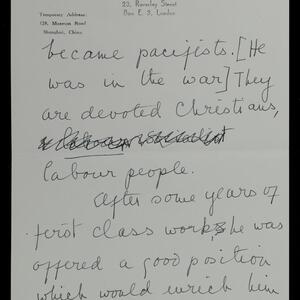 23, Roseley Street
Bow E. 3, London
Temporary Address:
128, Museum Road
Shanghai, China
became pacifists. [He
was in the war] They
are devoted Christians,
&
labour people.
After some years of
first class work, he was
offered a good position
which would enrich him